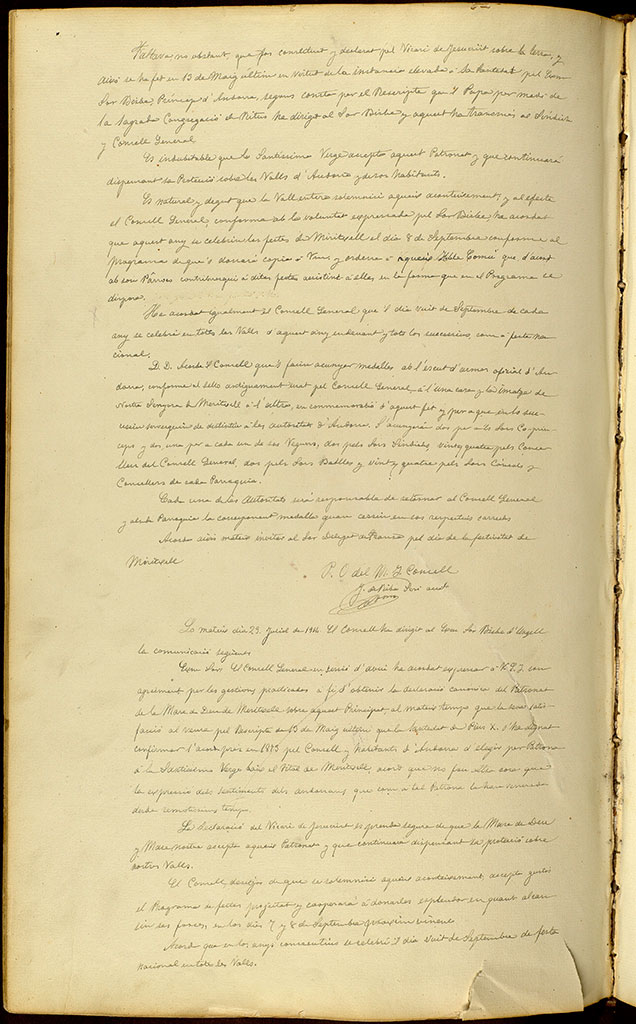 Faltava no obstant, que fos constituit y declarat pel Vicari de Jesucrist sobre la terra, y
aixó se ha fet en 13 de Maig ultim en virtut de la instancia elevada á Sa Santedat pel Exm
Sor Bisbe, Princep d'Andorra, segons consta por el Rescripte que 'l Papa per medi de
la Sagrada Congregació de Ritus ha dirigit al Sor Bisbe y aquest ha transmés al Sindich
y Consell General.
Es indubitable que la Santissima Verge accepta aquest Patronat y que continuará
dispensant sa Protecció sobre les Valls d'Andorra y de sos habitants.
Es natural y degut que la Vall entera solemnisi aqueix aconteixement, y al efecte
el Consell General, conforme ab la voluntat expressada pel Sor Bisbe, ha acordat
que aquest any se celebrin les festes de Meritxell el dia 8 de Septembre conforme al
Programa de que's donará copia á Vms. y ordena á aqueix Hble Comú que d'acort
ab sou Párroco contribuesqui á ditas festes assistint á elles en la forma que en el Programa se
disposa.
Ha acordat igualment el Consell General que 'l dia vuit de Septembre de cada
any se celebri en totes las Valls d'aquest any endevant y tots los successius, com á festa na-
cional.
D. D. Acorda 'l Consell que 's faciu acunyar medalles ab l'escut d'armes oficial d'An-
dorra, conforme al sello antiguament usat pel Consell General, á l'una cara y la imatge de
Nostra Senyora de Meritxell á l'altra, en conmemoració d'aquest fet y per a que en lo suc-
cessiu serveixin de distintiu á les autoritats d'Andorra. S'acunyarán dos per als Sors Co-prin-
ceps y dos, una por a cada un de sos Veguers, dos pels Sors Sindichs, vint y quatre pels Conse-
llers del Consell General, dos pels Sors Batlles y vint y quatre pels Sors Cónsols y
Consellers de cada Parroquia.
Cada una de las Autoritats será responsable de retornar al Consell General
y al de la Parroquia la corresponent medalla quan cessin en sos respectius carrechs
Acorda aixis mateix invitar al Sor Delegat de Fransa pel dia de la festivitat de
Meritxell
P. O del M. I. Consell
Lo mateix dia 23 Juliol de 1914 El Consell ha dirigit al Exm Sor Bisbe d'Urgell
la comunicació següent:
Exm Sor: El Consell General en sessió d'avui ha acordat expressar á V. E. I. son
agraiment per les gestions practicades á fi d'obtenir la declaració canonica del Patronat
de la Mare de Deu de Meritxell sobre aquest Principat, al mateix temps que la seva satis-
facció al veure pel Rescripte de 13 de Maig ultim que la Santedat de Pius X. s'ha dignat
confirmar l'acort pres en 1873 pel Consell y habitants d'Andorra d'elegir per Patrona
á la Santissima Verge baix el titol de Meritxell, acort que no fou altra cosa que
la expressió dels sentiments dels andorrans que com á tal Patrona la han venerada
desde remotissims temps.
La Declaració del Vicari de Jesucrist es prenda segura de que la Mare de Deu
y Mare nostra accepta aqueix Patronat y que continuará dispensant sa protecció sobre
nostres Valls.
El Consell, desitjós de que se solemnisi aqueix aconteixement, accepta gustós
el Programa de festes projectat y cooperará á donarles esplendor en quant alcan
sin sas forces, en los dies 7 y 8 de Septembre próxim vinent
Acorda que en los anys consecutius se celebri 'l dia vuit de Septembre de festa
nacional en totes les Valls.